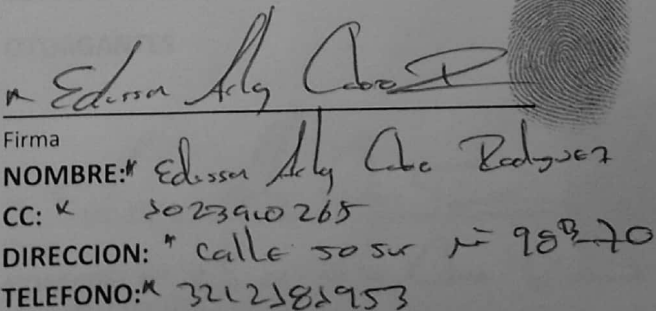 Edisson Arley Caba R
Firma
NOMBRE:* Edisson Arley Caba Rodriguez
CC: * 1023910265
DIRECCION: * Calle 50 sur N= 98B-70
TELEFONO:* 3212181953